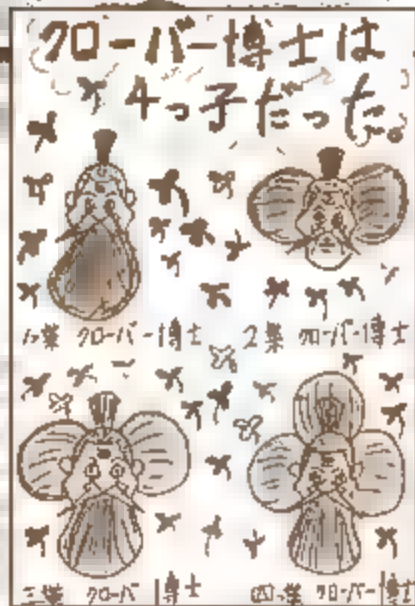 クローバー博士は
4っ子だった。
一葉 クローバー博士
2葉 クローバー博士
三葉 クローバー博士
四っ葉 クローバー博士